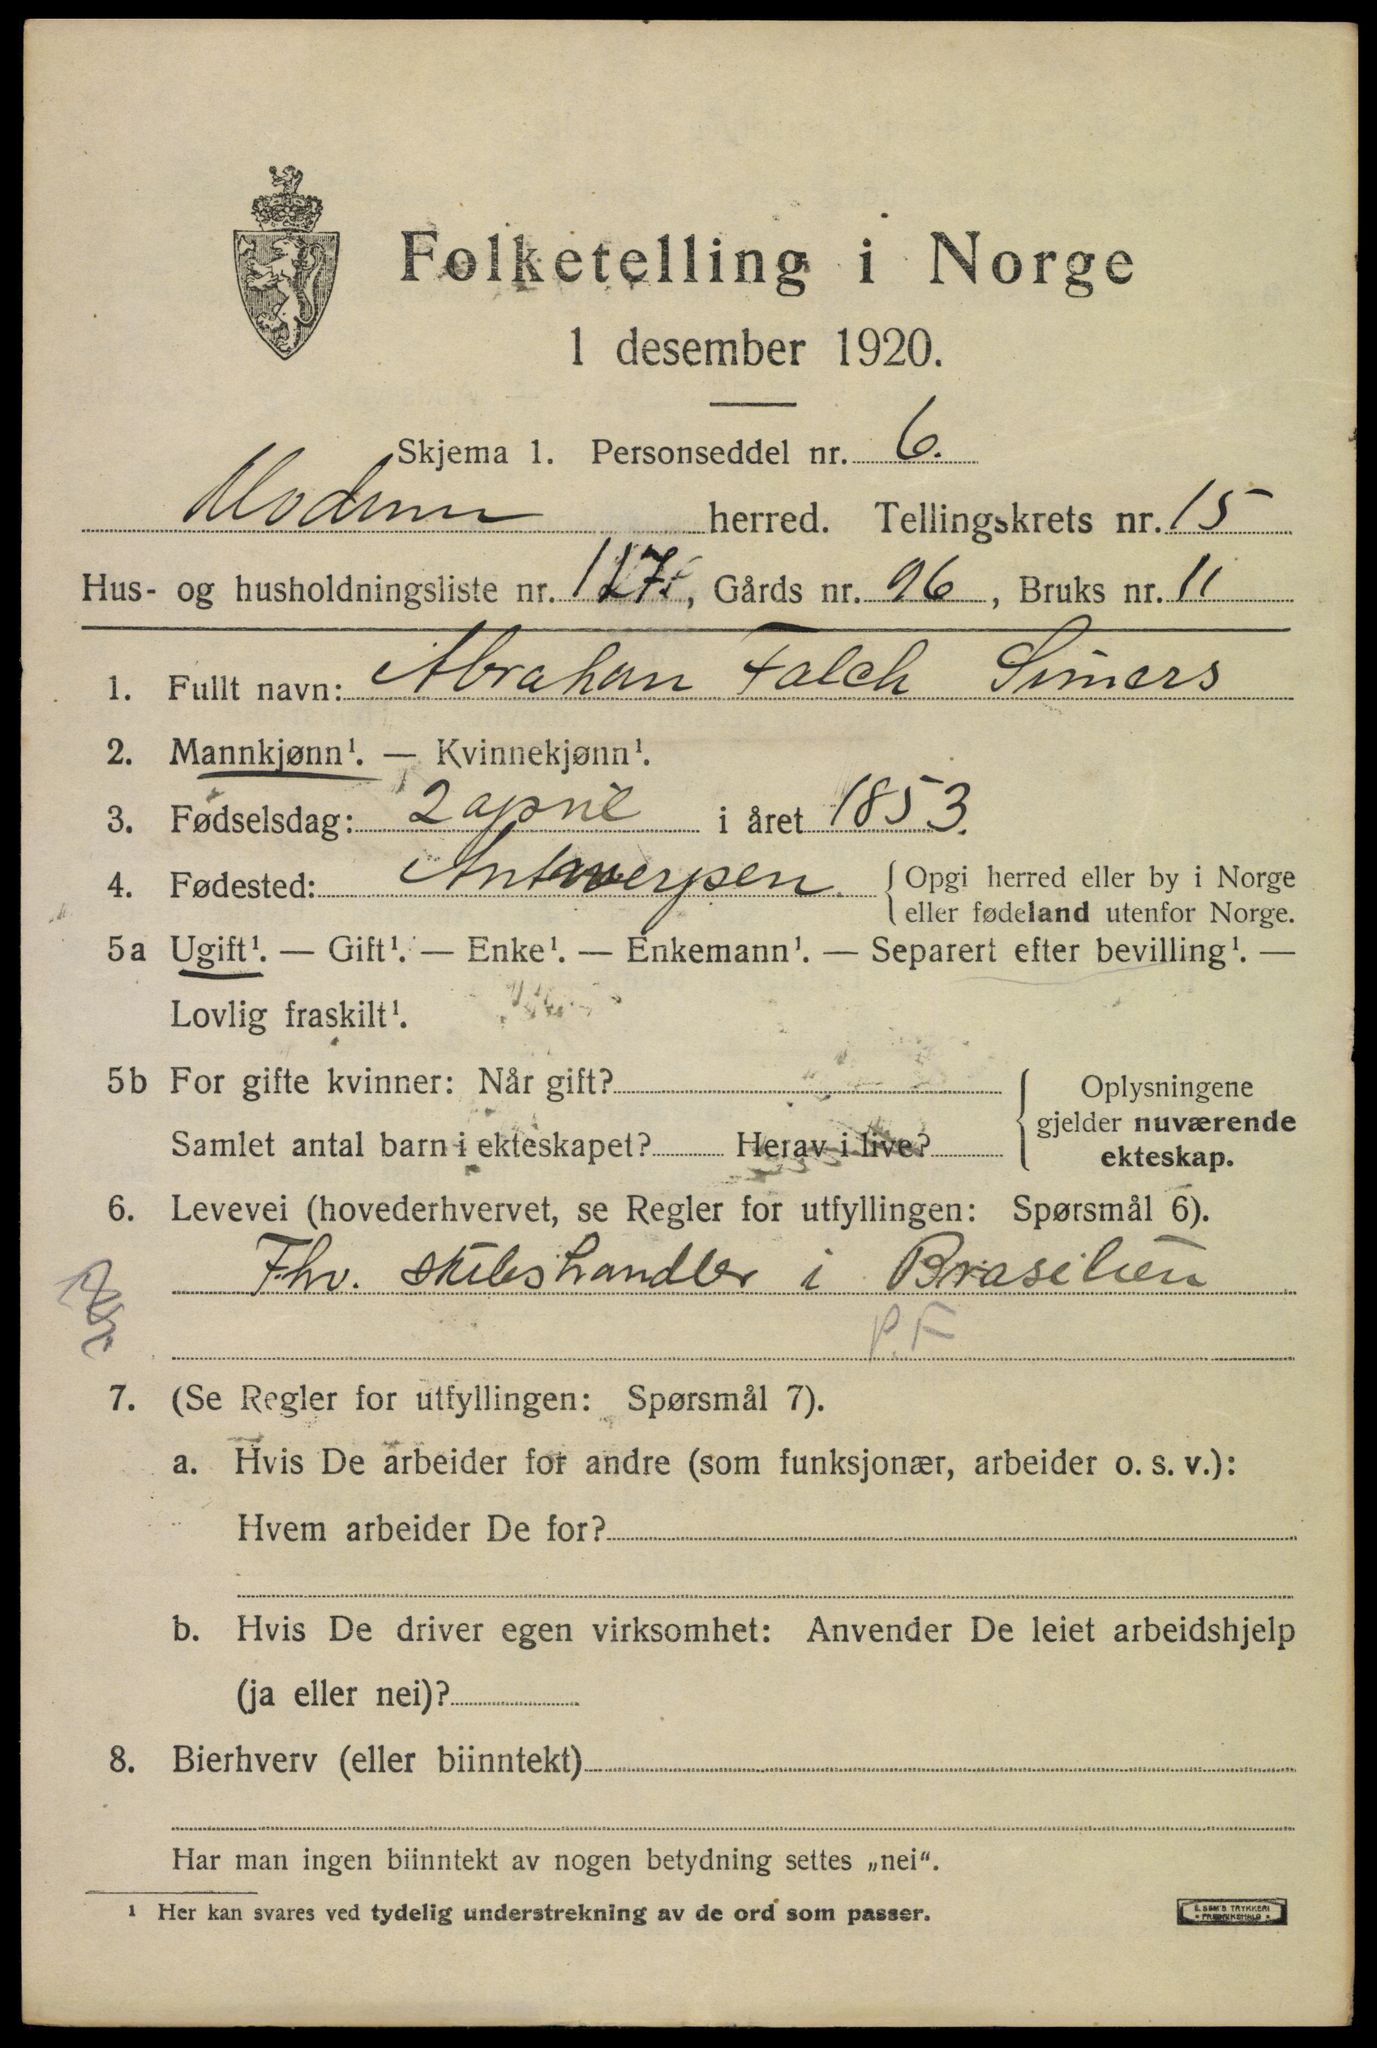 Folketelling i Norge
1 desember 1920.
Skjema 1. Personseddel nr. 6.
Modum herred. Tellingskrets nr. 15
Hus- og husholdningsliste nr. 117, Gårds nr. 96, Bruks nr. 11
1. Fullt navn: Abraham Falch
2. Mannkjønn¹. — Kvinnekjønn¹.
3. Fødselsdag: 2 april i året 1853.
4. Fødested: Antwerpen. { Opgi herred eller by i Norge
eller fødeland utenfor Norge.
5a Ugift¹. — Gift¹. — Enke¹. — Enkemann¹. — Separert efter bevilling¹. —
Lovlig fraskilt¹.
5b For gifte kvinner: Når gift?
Samlet antal barn i ekteskapet? Herav i live?
{ Oplysningene
gjelder nuværende
ekteskap.
6. Levevei (hovederhvervet, se Regler for utfyllingen: Spørsmål 6).
Fhv. skibshandler i Brasilien
P.F
7. (Se Regler for utfyllingen: Spørsmål 7).
a. Hvis De arbeider for andre (som funksjonær, arbeider o. s. v.):
Hvem arbeider De for?
b. Hvis De driver egen virksomhet: Anvender De leiet arbeidshjelp
(ja eller nei)?
8. Bierhverv (eller biinntekt)
Har man ingen biinntekt av nogen betydning settes „nei“.
¹ Her kan svares ved tydelig understrekning av de ord som passer.
E. SEM'S TRYKKERI
• FREDRIKSHALD •